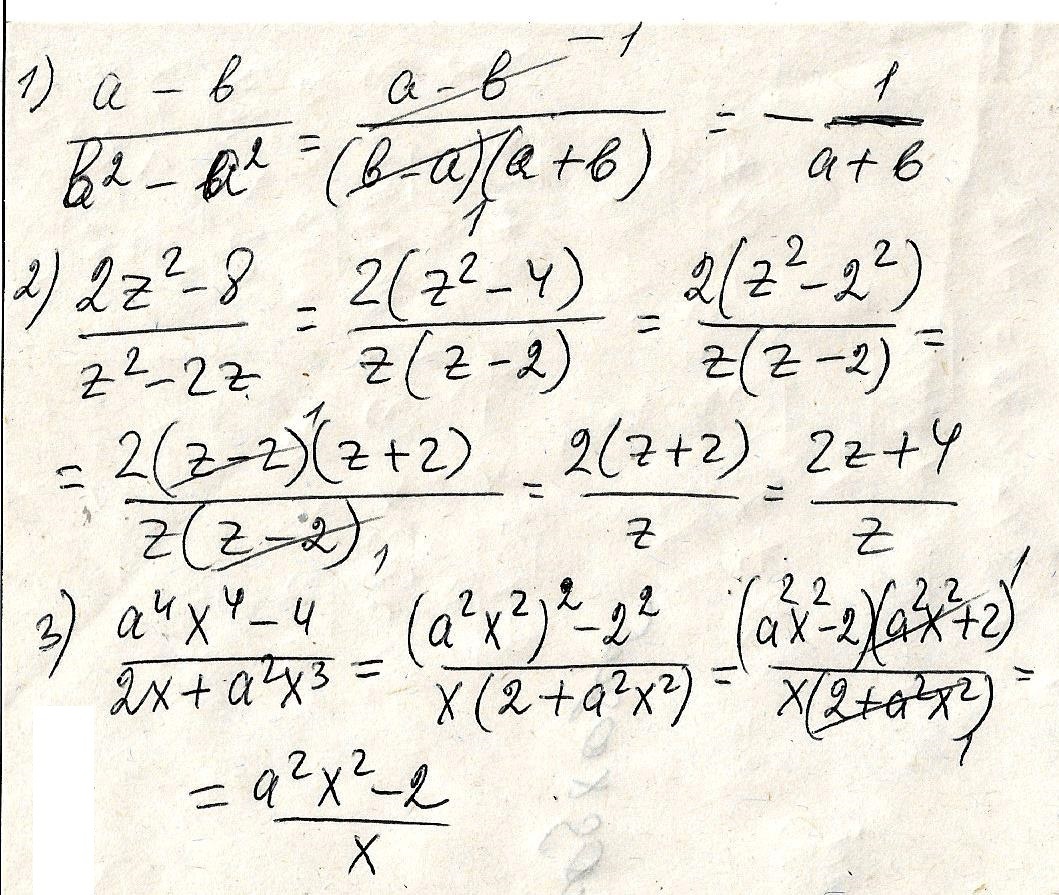 1) (a - b)/(b² - a²) = (a - b)⁻¹/((b - a)₁(a + b)) = - 1/(a + b)
2) (2z² - 8)/(z² - 2z) = 2(z² - 4)/(z(z - 2)) = 2(z² - 2²)/(z(z - 2)) =
= 2(z - 2)¹(z + 2)/(z(z - 2)₁) = 2(z + 2)/z = (2z + 4)/z
3) (a⁴x⁴ - 4)/(2x + a²x³) = ((a²x²)² - 2²)/(x(2 + a²x²)) = (a²x² - 2)(a²x² + 2)¹/(x(2 + a²x²)₁) =
= (a²x² - 2)/x